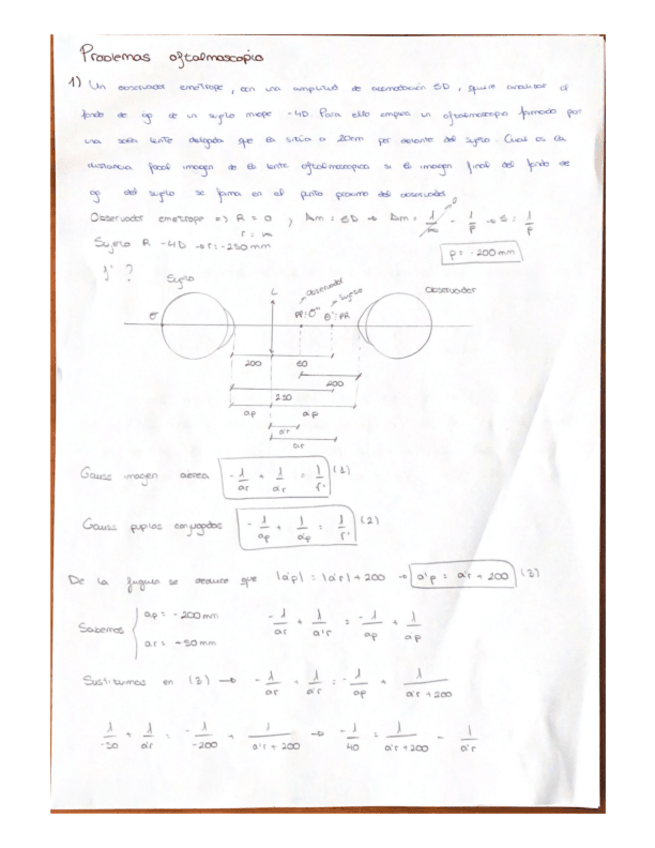 Problemas oftalmoscopio
1) Un observador emetrope, con una amplitud de acomodación 5D, quiere analizar el
fondo de ojo de un sujeto miope -4D. Para ello emplea un oftalmoscopio formado por
una sola lente delgada que la sitúa a 20cm por delante del sujeto. Cual es la
distancia focal imagen de la lente oftalmoscopica si la imagen final del fondo de
ojo del sujeto se forma en el punto proximo del observador.
Observador emetrope => R = 0 ; Am = 5D → Am = 1/∞ - 1/p → 5 = 1/p
0
r = ∞
Sujeto R -4D → r = -250mm
p = -200mm
f' ?
Sujeto
L
observador
sujeto
Observador
θ
PP=θ''
θ'=PR
200
50
200
250
ap
a'p
a'r
ar
Gauss imagen aerea -1/ar + 1/a'r = 1/f' (1)
Gauss pupilas conjugadas -1/ap + 1/a'p = 1/f' (2)
De la figura se deduce que |a'p| = |a'r| + 200 → a'p = a'r + 200 (3)
Sabemos { ap = -200mm
ar = -50mm
-1/ar + 1/a'r = -1/ap + 1/ap
Sustituimos en (3) → -1/ar + 1/a'r = -1/ap + 1/a'r + 200
1/-50 + 1/a'r = -1/-200 + 1/a'r + 200 → -1/40 = 1/a'r + 200 - 1/a'r